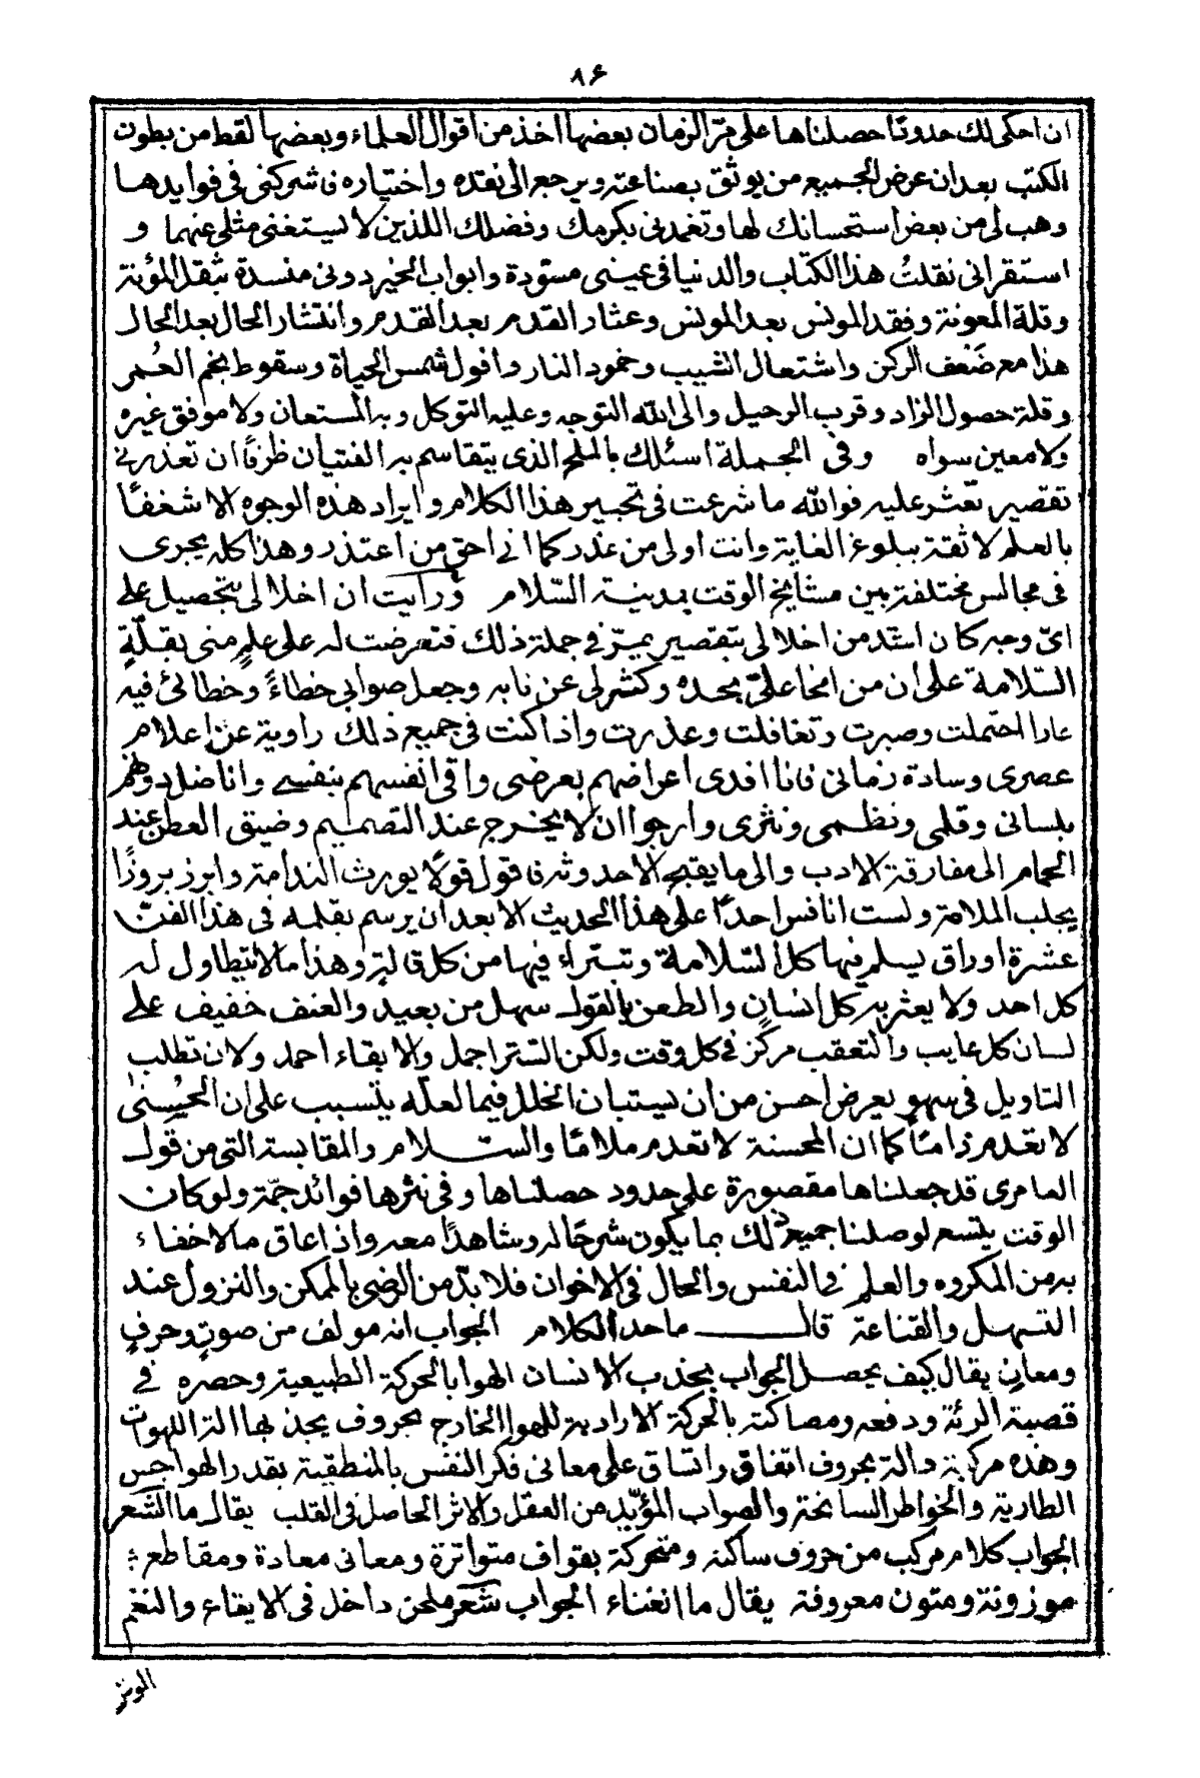 ٨۶
ان احكى لك حدودًا حصلناها على مرّ الزمان بعضها اخذ من اقوال العلماء وبعضها لقط من بطون
الكتب بعد ان عرض الجميع من يوثق بصناعته ويرجع الى نقده واختياره فاشركنى فى فوايدها
وهب لى من بعض استحسانك لها وتغمدنى بكرمك وفضلك اللذين لا يستغنى مثلى عنهما و
استقرانى نقلتُ هذا الكتاب والدنيا فى عينى مسودة وابواب الخير دونى منسدة بثقل المؤنة
وقلة المعونة وفقد المونس بعد المونس وعثار القدم بعد القدم وانتشار الحال بعد الحال
هذا مع ضَعف الركن واشتعال الشيب وخمود النار وافول شمس الحياة وسقوط نجم العُمر
وقلة حصول الزاد وقرب الرحيل والى الله التوجه وعليه التوكل وبه المستعان ولا موفق غيره
ولا معين سواه وفى الجملة اسئلك بالملح الذى يتقاسم به الفتيان ظرفًا ان تعذرنى
تقصير تعثر عليه فوالله ما شرعت فى تحبير هذا الكلام وايراد هذه الوجوه الا شغفًا
بالعلم لا ثقة ببلوغ الغاية وانت اولى من عذر كما انى احق من اعتذر وهذا كله يجرى
فى مجالس مختلفة بين مشايخ الوقت بمدينة السّلام ورأيت ان اخلالى بتحصيل على
اىّ وجه كان اشد من اخلالى بتقصير يمرّ فى جملة ذلك فتعرضت له على علمٍ منى بقلّةٍ
السّلامة على ان من انحا علىّ بحده وكشر لى عن نابه وجعل صوابى خطاءً وخطائى فيه
عارا احتملت وصبرت وتغافلت وعذرت واذا كنت فى جميع ذلك راوية عن اعلام
عصرى وسادة زمانى فانا افدى اعراضهم بعرضى واقى انفسهم بنفسى واناضل دونهم
بلسانى وقلمى ونظمى ونثرى وارجوا ان لا يخرج عند التصميم وضيق العطن عند
الحمام الى مفارقة الادب والى ما يقبح الاحدوثة فاقول قولًا يورث الندامة وابرز بروزًا
يجلب الملامة ولست انافس احدًا على هذا الحديث الا بعد ان يرسم بقلمه فى هذا الفنّ
عشرة اوراق يسلم فيها كل السّلامة ويتبراء فيها من كل قالةٍ وهذا ما لا يتطاول له
كل احد ولا يعثر به كل انسانٍ والطعن بالقول سهل من بعيد والعنف خفيف على
لسان كل عايب والتعقب مركز فى كل وقت ولكن الستر اجمل والابقاء احمد ولان تطلب
التاويل فى سهوٍ يعرض احسن من ان يستبان الخلل فيما لعله يتسبب على ان الحُسنىٰ
لا تعدم ذامًا كما ان المحسنة لا تعدم ملامًا والسّلام والمقابسة التى من قول
العامرى قد جعلناها مقصورة على حدود حصلناها وفى نثرها فوائد جمّة ولو كان
الوقت يتسع لوصلنا جميع ذلك بما يكون شرحًا له وشاهدًا معه واذ اعاق ما لاخفاء
به من المكروه والعلم فى النفس والحال فى الاخوان فلا بدّ من الرضى بالممكن والنزول عند
التسهل والقناعة قال ما حد الكلام الجواب انه مولف من صوتٍ وحرفٍ
ومعانٍ يقال كيف يحصل الجواب بجذب الانسان الهوا بالحركة الطبيعية وحصره فى
قصبة الرئة ودفعه ومصاكته بالحركة الارادية للهوا الخارج بحروف يجذبها الة اللهوات
وهذه مركبة دالة بحروف اتفاق واتساق على معانى فكر النفس بالمنطقية بقدر الهواجس
الطارية والخواطر السانحة والصواب المؤيّد من العقل والاثر الحاصل فى القلب يقال ما الشعر
الجواب كلام مركب من حروف ساكنة ومتحركة بقواف متواترة ومعانى معادة ومقاطع
موزونة ومتون معروفة يقال ما الغناء الجواب شعر ملحن داخل فى الايقاع والنغم